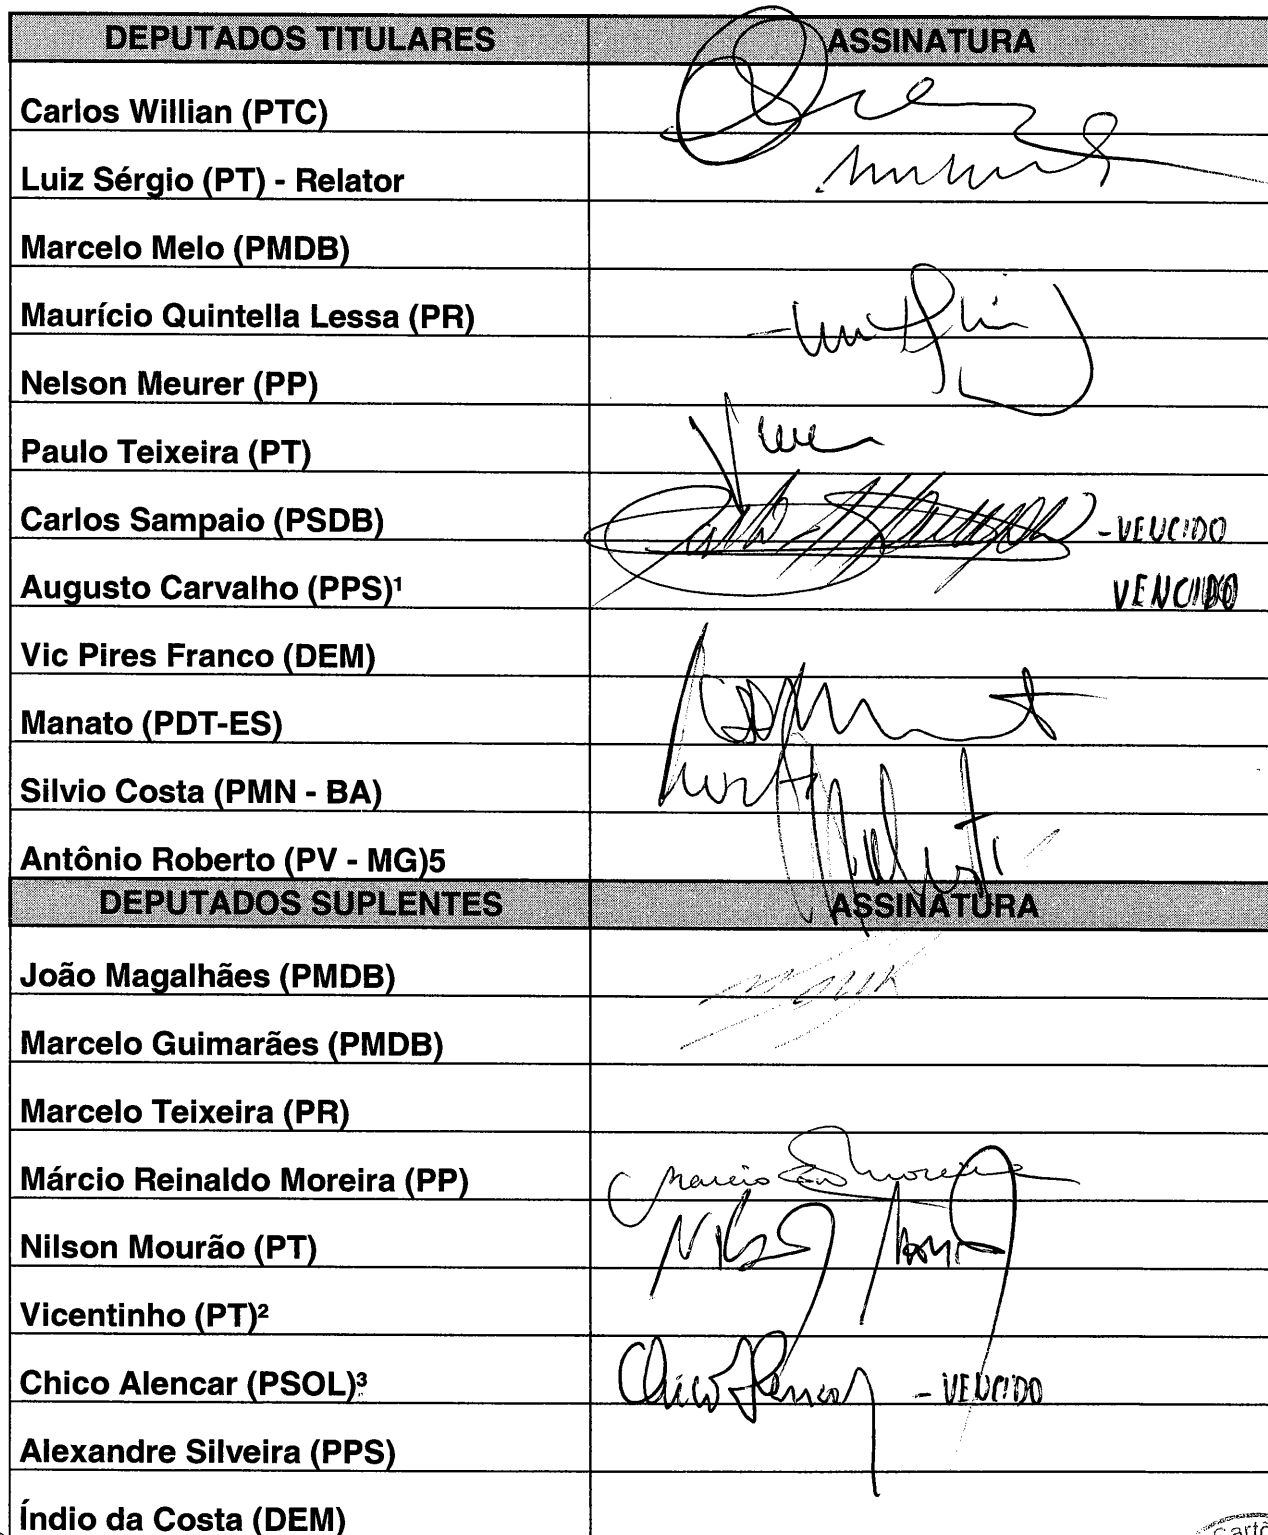 DEPUTADOS TITULARES ASSINATURA
Carlos Willian (PTC)
Luiz Sérgio (PT) - Relator
Marcelo Melo (PMDB)
Maurício Quintella Lessa (PR)
Nelson Meurer (PP)
Paulo Teixeira (PT)
Carlos Sampaio (PSDB) - VENCIDO
Augusto Carvalho (PPS)¹ VENCIDO
Vic Pires Franco (DEM)
Manato (PDT-ES)
Silvio Costa (PMN - BA)
Antônio Roberto (PV - MG)5
DEPUTADOS SUPLENTES ASSINATURA
João Magalhães (PMDB)
Marcelo Guimarães (PMDB)
Marcelo Teixeira (PR)
Márcio Reinaldo Moreira (PP) Marcio Moreira
Nilson Mourão (PT)
Vicentinho (PT)²
Chico Alencar (PSOL)³ Chico Alencar - VENCIDO
Alexandre Silveira (PPS)
Índio da Costa (DEM)